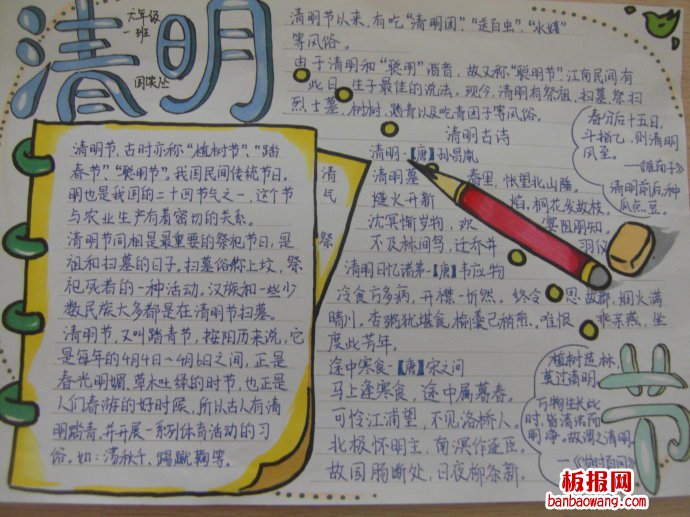 清明
六年级
一班
清明节以来，有吃“清明团”、“送白虫”、“水嬉”
等风俗。
由于清明和“聪明”谐音，故又称“聪明节”，江南民间有
此日生子最佳的说法。现今，清明有祭祖、扫墓、祭扫
烈士墓、植树、踏青以及吃青团子等风俗。
清明古诗
清明·【唐】孙昌胤
清明暮春里，怅望北山陲。
燧火开新焰，桐花发故枝。
沈冥惭岁物，欢宴阻朋知。
不及林间鸟，迁乔并羽仪
清明日忆诸弟·【唐】韦应物
冷食方多病，开襟一忻然。终令思故郡，烟火满
晴川。杏粥犹堪食，榆羹已稍煎。唯恨乖亲燕，坐
度此芳年。
途中寒食·【唐】宋之问
马上逢寒食，途中属暮春。
可怜江浦望，不见洛桥人。
北极怀明主，南溟作逐臣。
故园肠断处，日夜柳条新。
清明节，古时亦称“植树节”、“踏
春节”、“聪明节”。我国民间传统节日。清
明也是我国的二十四节气之一，这个节
民
与农业生产有着密切的关系。
清明节同祖是最重要的祭祀节日，是祭
祖和扫墓的日子。扫墓俗称上坟，祭
祀死者的一种活动。汉族和一些少
数民族大多都是在清明节扫墓。
清明节，又叫踏青节，按阳历来说，它
是每年的4月4日～4月6日之间，正是
春光明媚，草木吐绿的时节，也正是
人们春游的好时候，所以古人有清
明踏青，并开展一系列体育活动的习
俗。如：荡秋千、踢蹴鞠等。
春分后十五日，
斗指乙，则清明
风至。
——《淮南子》
清明前后，种
瓜点豆。
植树造林，
莫过清明。
万物生长此
时，皆清洁而
明净。故谓之清明。
——《岁时百问》
节
板报网
banbaowang.com